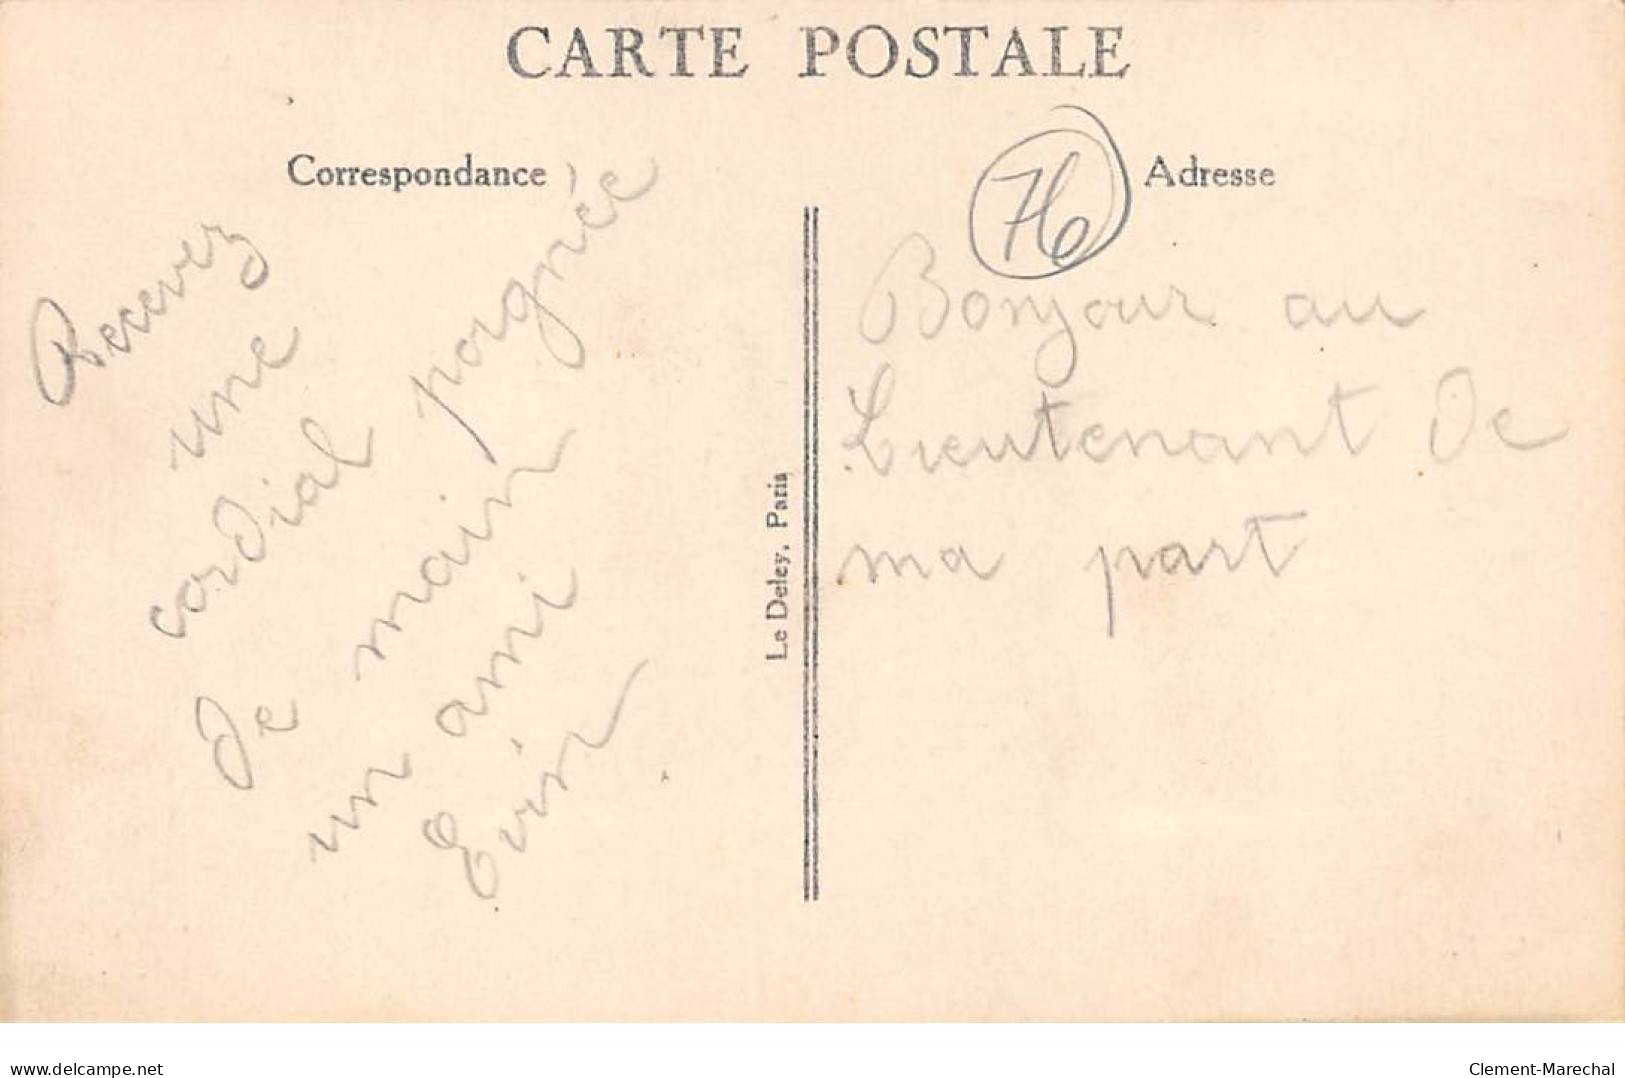 CARTE POSTALE
Correspondance
Adresse
76
Recevez
une
cordial poignée
de main
un ami
Bonjour au
Lieutenant de
ma part
Le Deley, Paris
delcampe.net
Clement-Marechal